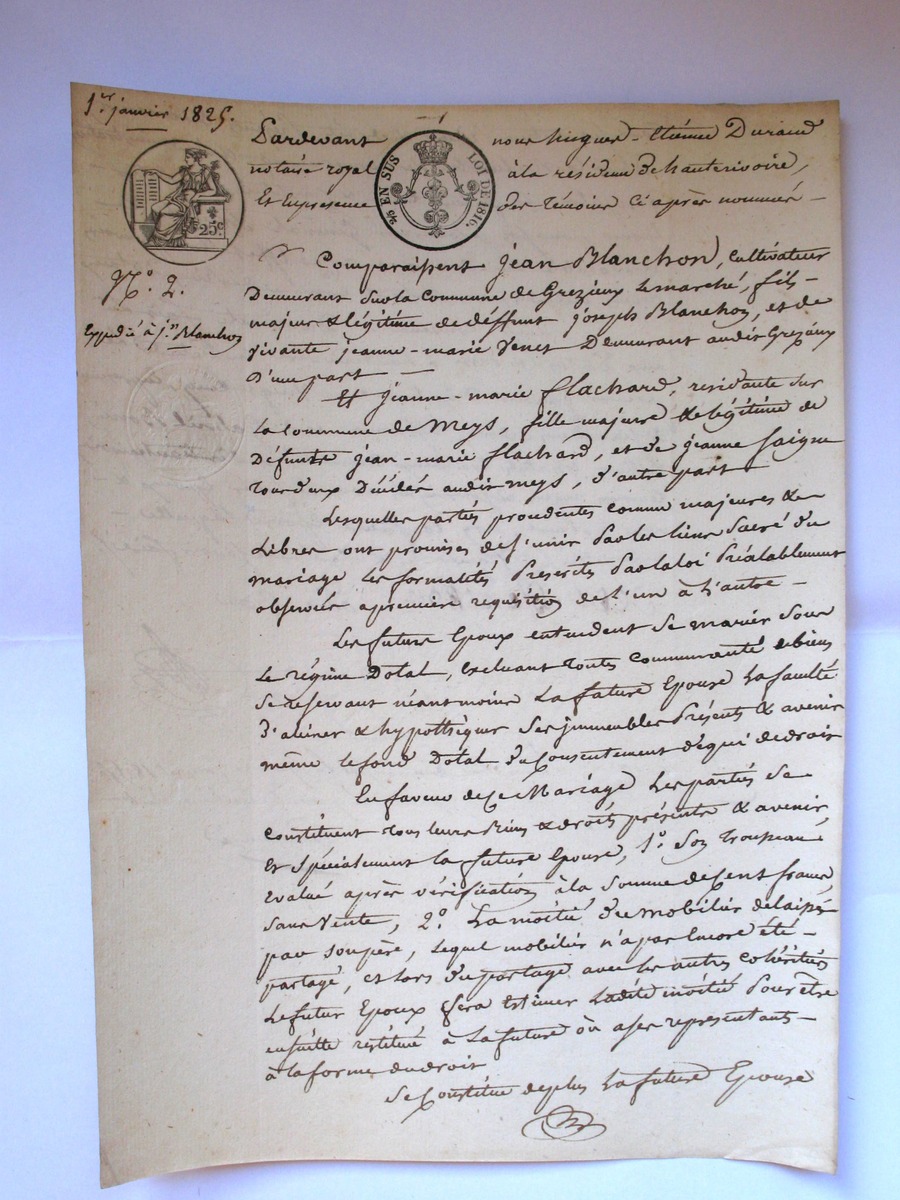 1er janvier 1825.
Pardevant nous hugues-Etienne Durand
notaire royal à la résidence d'hauterivoire,
Et en presence des témoins ci après nommés
EN SUS LOI DE 1816.
25c
N.° 2.
Expedié à jn Blanchon
Comparaissent jean Blanchon, cultivateur
Demeurant sur la commune de Grezieux le marché, fils
majeur & légitime de deffunt joseph Blanchon, et de
vivante jeanne-marie Venet Demeurant audit Grezieux
D'une part
Et jeanne-marie flachard, residante sur
la commune de Meys, fille majeure & légitime de
Défunts jean-marie flachard, et de jeanne
tous deux Décédés audit meys, d'autre part
Lesquelles parties procedentes comme majeures &
Libres ont promises de s'unir par les liens sacré du
mariage les formalités Prescrites par la loi Préalablement
observées a première requisition de l'un à l'autre
Les future Epoux entendent se marier sous
Le régime Dotal, excluant toutes communauté de biens
se reservant néantmoins La future Epouse La faculté
D'aliéner & hypothéquer ses jmmeubles Présents & avenir
même le fond Dotal du Consentement de qui de droit
En faveur de ce Mariage Les parties se
constituent tous leurs biens & droits présents & avenir
Et spécialement la future Epouse, 1.° son trousseau
evalué après vérification à la somme de Cent francs
sans vente, 2.° La moitié du mobilier délaissé
par son père, lequel mobilier n'a pas Encore été
partagé, et lors du partage avec les autres cohérités
Le futur Epoux fera Estimer Ladite moitié Pour être
ensuitte restitué à La future où a ses representants
à la forme du droit
se Constitue de plus La future Epouse